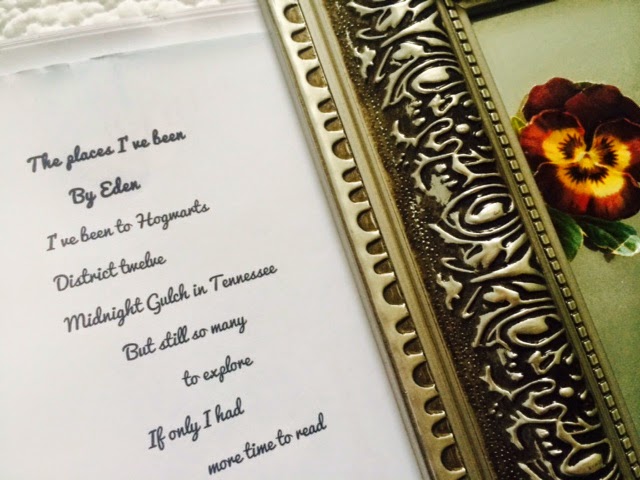 The places I've been
By Eden
I've been to Hogwarts
District twelve
Midnight Gulch in Tennessee
But still so many
to explore
If only I had
more time to read